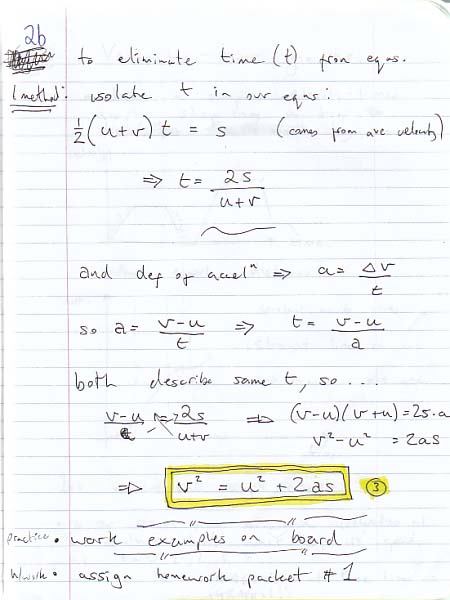 2b
to eliminate time (t) from eqns.
1 method: isolate t in our eqns:
½(u+v) t = s (comes from ave velocity)
⇒ t = 2s / u+v
and def of accelⁿ ⇒ a = Δv / t
so a = v-u / t ⇒ t = v-u / a
both describe same t, so ...
v-u / a = 2s / u+v ⇒ (v-u)(v+u) = 2s·a
v² - u² = 2as
⇒ v² = u² + 2as ③
practice • work examples on board
h/work • assign homework packet #1